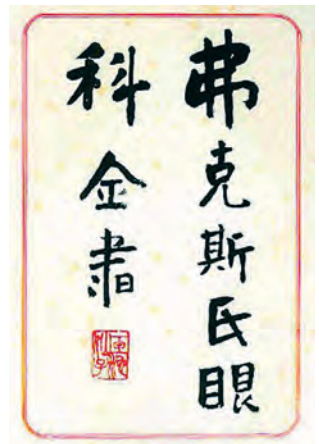 弗克斯氏眼
科金書